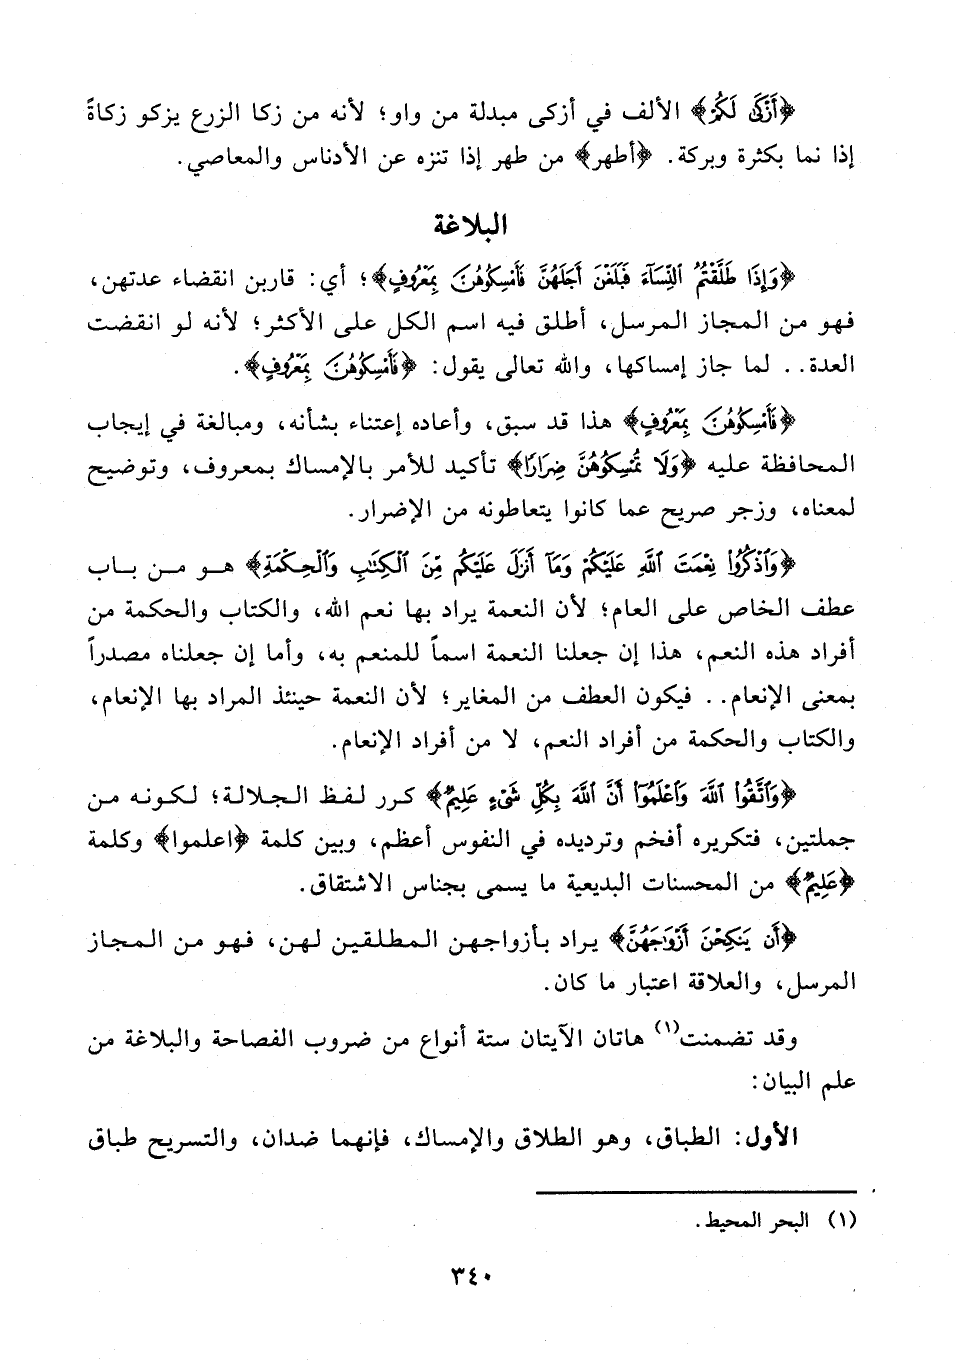 ﴿أَزْكَىٰ لَكُمْ﴾ الألف في أزكى مبدلة من واو؛ لأنه من زكا الزرع يزكو زكاةً
إذا نما بكثرة وبركة. ﴿أطهر﴾ من طهر إذا تنزه عن الأدناس والمعاصي.
البلاغة
﴿وَإِذَا طَلَّقْتُمُ ٱلنِّسَآءَ فَبَلَغْنَ أَجَلَهُنَّ فَأَمْسِكُوهُنَّ بِمَعْرُوفٍ﴾؛ أي: قاربن انقضاء عدتهن،
فهو من المجاز المرسل، أطلق فيه اسم الكل على الأكثر؛ لأنه لو انقضت
العدة.. لما جاز إمساكها، والله تعالى يقول: ﴿فَأَمْسِكُوهُنَّ بِمَعْرُوفٍ﴾.
﴿فَأَمْسِكُوهُنَّ بِمَعْرُوفٍ﴾ هذا قد سبق، وأعاده إعتناء بشأنه، ومبالغة في إيجاب
المحافظة عليه ﴿وَلَا تُمْسِكُوهُنَّ ضِرَارًا﴾ تأكيد للأمر بالإمساك بمعروف، وتوضيح
لمعناه، وزجر صريح عما كانوا يتعاطونه من الإضرار.
﴿وَٱذْكُرُوا۟ نِعْمَتَ ٱللَّهِ عَلَيْكُمْ وَمَآ أَنزَلَ عَلَيْكُم مِّنَ ٱلْكِتَٰبِ وَٱلْحِكْمَةِ﴾ هو من باب
عطف الخاص على العام؛ لأن النعمة يراد بها نعم الله، والكتاب والحكمة من
أفراد هذه النعم، هذا إن جعلنا النعمة اسماً للمنعم به، وأما إن جعلناه مصدراً
بمعنى الإنعام.. فيكون العطف من المغاير؛ لأن النعمة حينئذ المراد بها الإنعام،
والكتاب والحكمة من أفراد النعم، لا من أفراد الإنعام.
﴿وَٱتَّقُوا۟ ٱللَّهَ وَٱعْلَمُوٓا۟ أَنَّ ٱللَّهَ بِكُلِّ شَىْءٍ عَلِيمٌ﴾ كرر لفظ الجلالة؛ لكونه من
جملتين، فتكريره أفخم وترديده في النفوس أعظم، وبين كلمة ﴿اعلموا﴾ وكلمة
﴿عَلِيمٌ﴾ من المحسنات البديعية ما يسمى بجناس الاشتقاق.
﴿أَن يَنكِحْنَ أَزْوَٰجَهُنَّ﴾ يراد بأزواجهن المطلقين لهن، فهو من المجاز
المرسل، والعلاقة اعتبار ما كان.
وقد تضمنت(١) هاتان الآيتان ستة أنواع من ضروب الفصاحة والبلاغة من
علم البيان:
الأول: الطباق، وهو الطلاق والإمساك، فإنهما ضدان، والتسريح طباق
(١) البحر المحيط.
٣٤٠